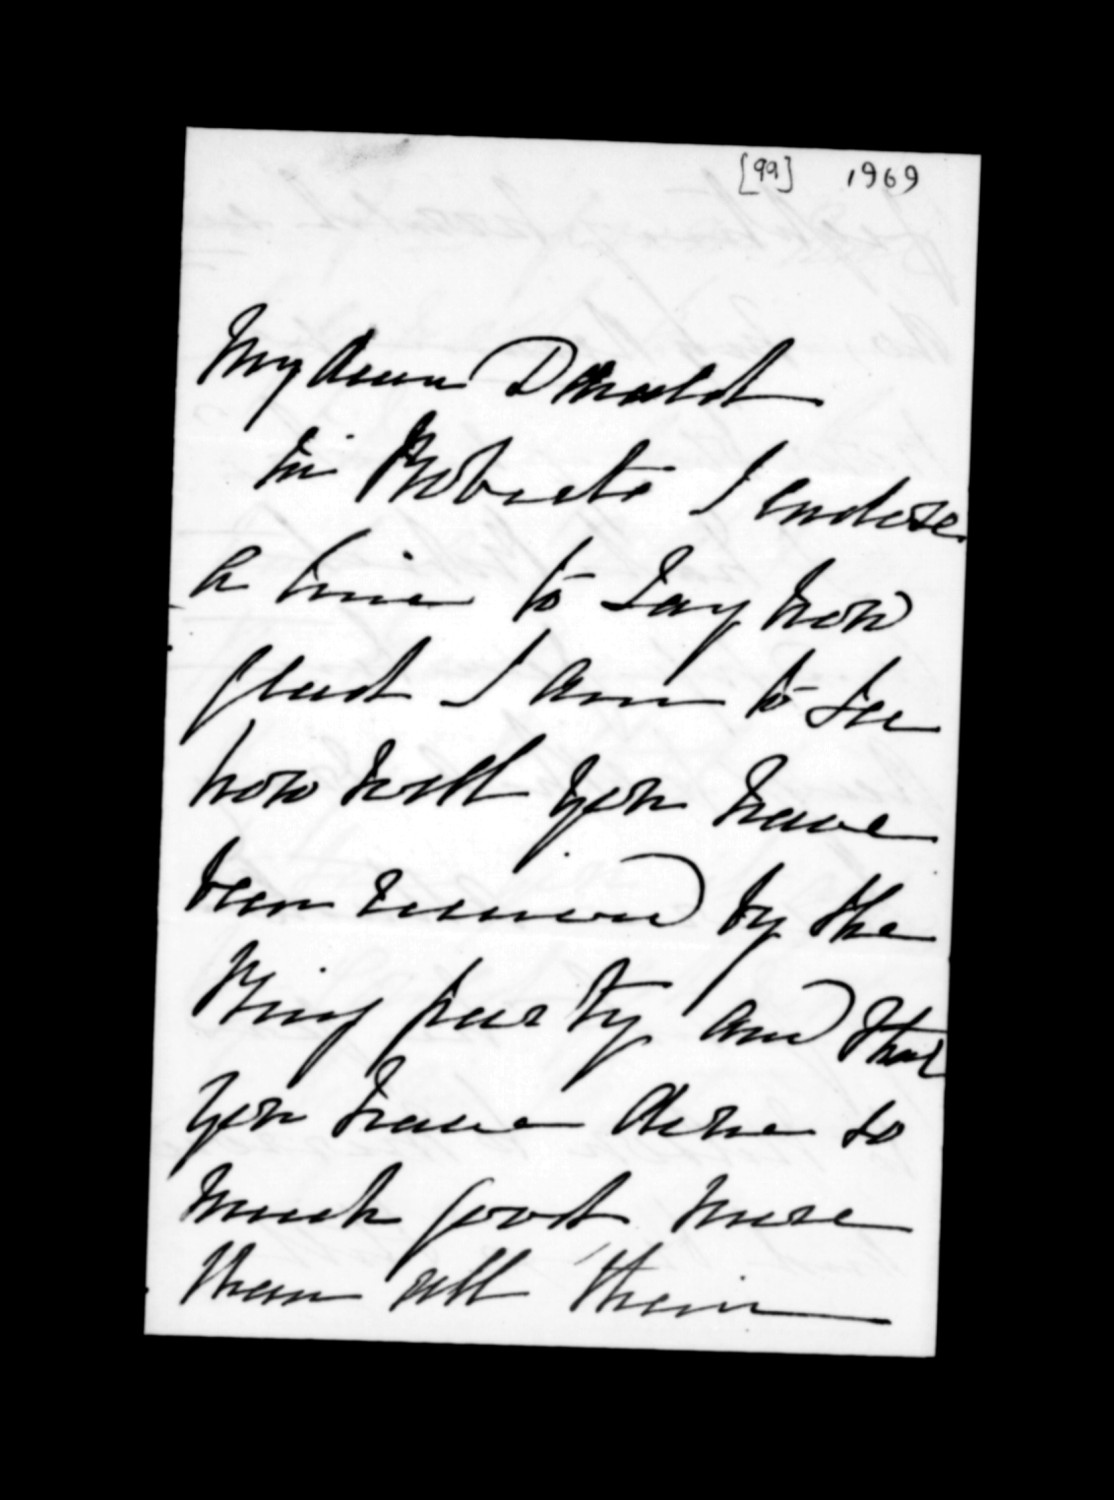 [99] 1969
My dear Donald
In Roberts I enclose
a line to say how
glad I am to see
how well you have
been received by the
King party and that
you have done so
much good more
than all their